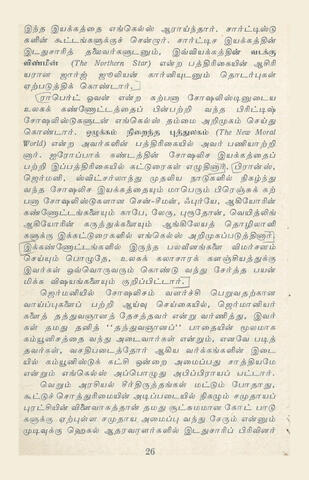 இந்த இயக்கத்தை எங்கெல்ஸ் ஆராய்ந்தார். சார்ட்டிஸ்டு
களின் கூட்டங்களுக்குச் சென்றார். சார்ட்டிச இயக்கத்தின்
இடதுசாரித் தலைவர்களுடனும், இவ்வியக்கத்தின் வடக்கு
விண்மீன் (The Northern Star) என்ற பத்திரிகையின் ஆசிரி
யரான ஜார்ஜ் ஜூலியன் கார்னியுடனும் தொடர்புகள்
ஏற்படுத்திக் கொண்டார்.
ராபெர்ட் ஓவன் என்ற கற்பனா சோஷலிஸ்டினுடைய
உலகக் கண்ணோட்டத்தைப் பின்பற்றி வந்த பிரிட்டிஷ்
சோஷலிஸ்டுகளுடன் எங்கெல்ஸ் தம்மை அறிமுகம் செய்து
கொண்டார். ஒழுக்கம் நிறைந்த புத்துலகம் (The New Moral
World) என்ற அவர்களின் பத்திரிகையில் அவர் பணியாற்றி
னார். ஐரோப்பாக் கண்டத்தின் சோஷலிச இயக்கத்தைப்
பற்றி இப்பத்திரிகையில் கட்டுரைகள் எழுதினார். பிரான்ஸ்,
ஜெர்மனி, ஸ்விட்சர்லாந்து முதலிய நாடுகளில் நிகழ்ந்து
வந்த சோஷலிச இயக்கத்தையும் மாபெரும் பிரெஞ்சுக் கற்
பனா சோஷலிஸ்டுகளான சென்-சிமன், ஃபுர்யே, ஆகியோரின்
கண்ணோட்டங்களையும் காபே, லேரு, புரூதோன், வெயிட்லிங்
ஆகியோரின் கருத்துக்களையும் ஆங்கிலேயத் தொழிலாளி
களுக்கு இக்கட்டுரைகளில் எங்கெல்ஸ் அறிமுகப்படுத்தினார்.
இக்கண்ணோட்டங்களில் இருந்த பலவீனங்களை விமர்சனம்
செய்யும் பொழுதே, உலகக் கலாசாரக் களஞ்சியத்துக்கு
இவர்கள் ஒவ்வொருவரும் கொண்டு வந்து சேர்த்த பயன்
மிக்க விஷயங்களையும் குறிப்பிட்டார்.
ஜெர்மனியில் சோஷலிசம் வளர்ச்சி பெறுவதற்கான
வாய்ப்புகளைப் பற்றி ஆய்வு செய்கையில், ஜெர்மானியர்
களைத் தத்துவஞானத் தேசத்தவர் என்று வர்ணித்து, இவர்
கள் தமது தனித் “தத்துவஞானப்” பாதையின் மூலமாக
கம்யூனிசத்தை வந்து அடைவார்கள் என்றும், எனவே படித்
தவர்கள், வசதிபடைத்தோர் ஆகிய வர்க்கங்களின் இடை
யில் கம்யூனிஸ்டுக் கட்சி ஒன்றை அமைப்பது சாத்தியமே
என்றும் எங்கெல்ஸ் அப்பொழுது அபிப்பிராயப் பட்டார்.
வெறும் அரசியல் சீர்திருத்தங்கள் மட்டும் போதாது,
கூட்டுச் சொத்துரிமையின் அடிப்படையில் நிகழும் சமுதாயப்
புரட்சியின் விளைவாகத்தான் தமது சூட்சுமமான கோட் பாடு
களுக்கு ஏற்புள்ள சமுதாய அமைப்பு வந்து சேரும் என்னும்
முடிவுக்கு ஹெகல் ஆதரவாளர்களில் இடதுசாரிப் பிரிவினர்
26